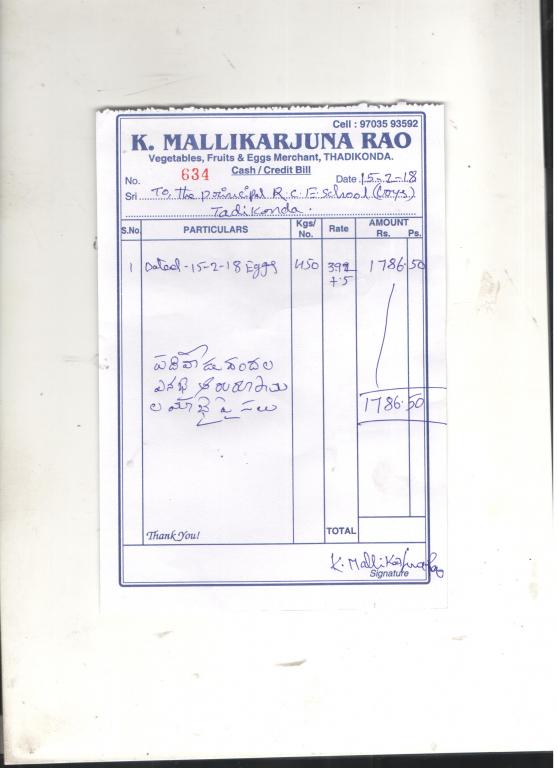 Cell : 97035 93592
K. MALLIKARJUNA RAO
Vegetables, Fruits & Eggs Merchant, THADIKONDA.
Cash / Credit Bill
No. 634 Date 15-2-18
Sri To, the principal R.C.E school (boys)
Tadikonda.
S.No. PARTICULARS Kgs/ No. Rate AMOUNT Rs. Ps.
1 Dated-15-2-18 Eggs 450 392 1786.50
+5
1786.50
Thank You! TOTAL
K. Mallikarjuna Rao
Signature